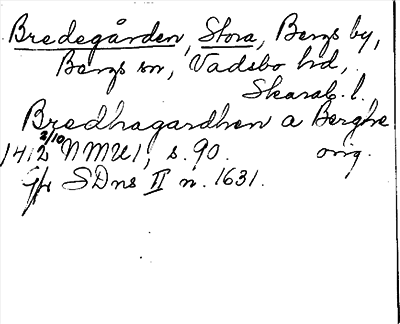 Bredegården, Stora, Bergs by,
Bergs sn, Vadsbo hd,
Skarab. l.
Bredhagardhen a Berghe
1412 2/10 NMU 1, s. 90. orig.
Jfr SDns II n. 1631.